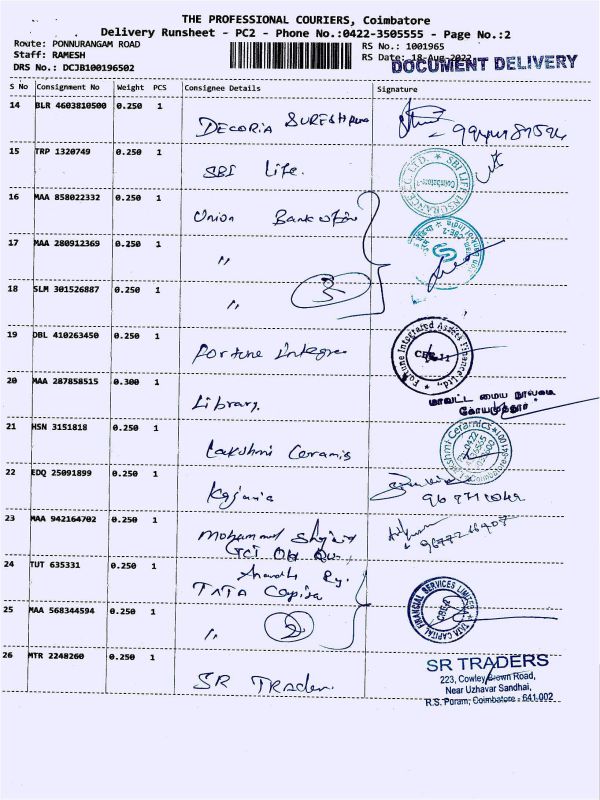 THE PROFESSIONAL COURIERS, Coimbatore
Delivery Runsheet - PC2 - Phone No.:0422-3505555 - Page No.:2
Route: PONNURANGAM ROAD
RS No.: 1001965
Staff: RAMESH
RS Date: 18-Aug-2022
DOCUMENT DELIVERY
DRS No.: DCJB100196502
S No Consignment No Weight PCS Consignee Details Signature
14 BLR 4603810500 0.250 1 DECORIA
15 TRP 1320749 0.250 1 SBI Life.
SBI LIFE INSURANCE
16 MAA 858022332 0.250 1 Union Bank
17 MAA 280912369 0.250 1 "
18 SLM 301526887 0.250 1 " 3
19 DBL 410263450 0.250 1 Fortune
Fortune Integrated Assets Finance Ltd.,
20 MAA 287858515 0.300 1 Library.
மாவட்ட மைய நூலகம்
கோயமுத்தூர்
21 HSN 3151818 0.250 1 Lakshmi Ceramis
Lakshmi Ceramics
22 EDQ 25091899 0.250 1 Kajaria
23 MAA 942164702 0.250 1 Mohammed
24 TUT 635331 0.250 1 TATA
TATA CAPITAL FINANCIAL SERVICES LIMITED
25 MAA 568344594 0.250 1 " 2
26 MTR 2248260 0.250 1 SR Trader.
SR TRADERS
223, Cowley Brown Road,
Near Uzhavar Sandhai,
R.S. Puram, Coimbatore - 641 002